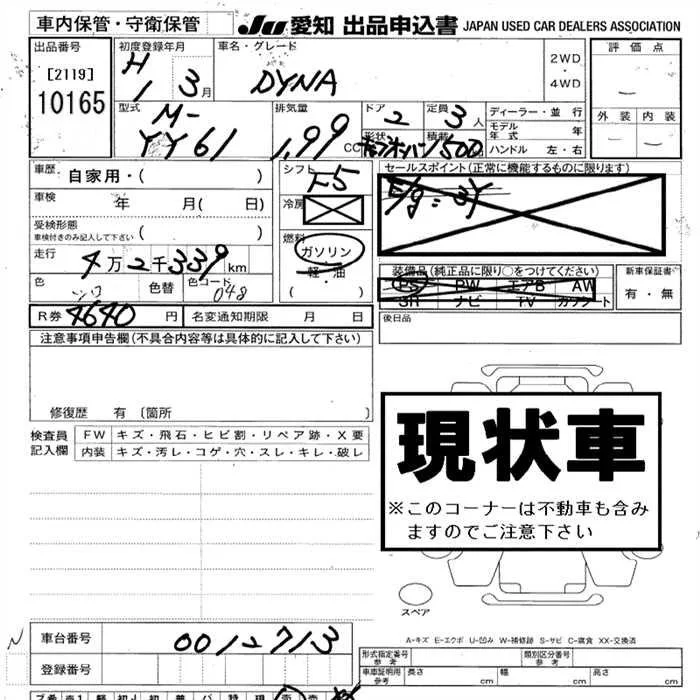 車内保管・守衛保管
JU 愛知 出品申込書 JAPAN USED CAR DEALERS ASSOCIATION
出品番号
[2119]
10165
初度登録年月
H 1 3月
車名・グレード
DYNA
2WD
・
4WD
評価点
外装 内装
型式
M-
YY61
排気量
1.99
CC
ドア
2
定員
3人
形状
積載
1500
ディーラー・並行
モデル年式 年
ハンドル 左・右
車歴
自家用・( )
車検
年 月( 日)
受検形態
車検付きのみ記入して下さい
( )
走行
4万2千339km
色
シロ
色替
色コード
048
シフト
F5
冷房
燃料
ガソリン
軽・油
( )
セールスポイント(正常に機能するものに限ります)
E/g=3Y
装備品(純正品に限り○をつけてください)
PS PW エアB AW
SR ナビ TV カワシート
新車保証書
有・無
R券 4640円
名変通知期限 月 日
後日品
注意事項申告欄(不具合内容等は具体的に記入して下さい)
修復歴 有 〔箇所 〕
検査員
記入欄
FW キズ・飛石・ヒビ割・リペア跡・X要
内装 キズ・汚レ・コゲ・穴・スレ・キレ・破レ
現状車
※このコーナーは不動車も含み
ますのでご注意下さい
スペア
A-キズ E-エクボ U-凹み W-補修跡 S-サビ C-腐食 XX-交換済
N
車台番号
0012713
登録番号
形式指定番号
参考
類別区分番号
参考
車庫証明用
参考
長さ
幅
高さ